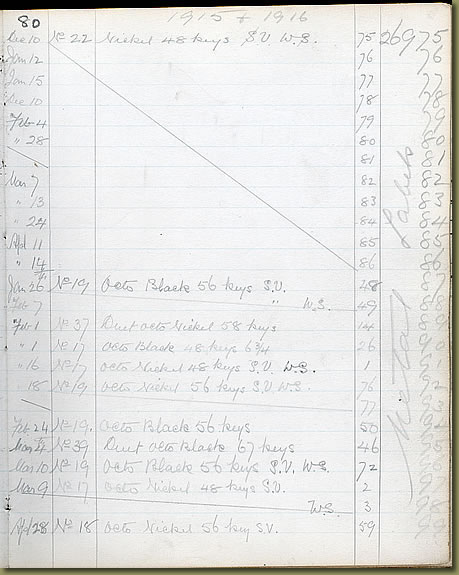 80 1915 + 1916
Dec 10 No 22 Nickel 48 keys S.V. W.S. 75 26975
Jan 12 76 76
Jan 15 77 77
Dec 10 78 78
Feb 4 79 9
" 28 80 0
81 1
Mar 7 82 2
" 13 83 3
" 24 84 4
Apl 11 85 5
" 14 86
Jan 26 No 19 Octo Black 56 keys S.V. 48
Feb 7 " W.S. 49
Feb 1 No 37 Duet octo Nickel 58 keys 14
" 1 No 17 Octo Black 48 keys 6 3/4 26
" 16 No 17 Octo Nickel 48 keys S.V. W.S. 1
" 18 No 19 Octo Nickel 56 keys S.V. W.S. 76
77
Feb 24 No 19. Octo Black 56 keys 50
Mar 4 No 39 Duet Octo Black 67 keys 46
Mar 10 No 19 Octo Black 56 keys S.V. W.S. 72
Mar 9 No 17 Octo Nickel 48 keys S.V. 2
W.S. 3
Apl 28 No 18 Octo Nickel 56 key S.V. 59
Metal Labels